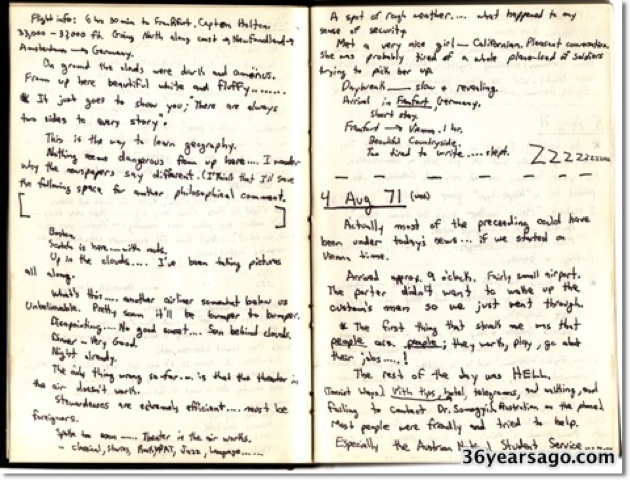 Flight info: 6 hrs 30 min to Frankfurt, Captain Holton
33,000 - 37,000 ft. Going North along coast → Newfoundland →
Amsterdam → Germany.
On ground the clouds were dark and ominous.
From up here beautiful white and fluffy........
* It just goes to show you; "There are always
two sides to every story".
This is the way to learn geography.
Nothing seems dangerous from up here.... I wonder
why the newspapers say different. (I think that I'll save
the following space for another philosophical comment.
[ ]
Boston.
Scotch is here....with nuts.
Up in the clouds.... I've been taking pictures
all along.
What's this.... another airliner somewhat below us
Unbelievable. Pretty soon it'll be bumper to bumper.
Disappointing.... No good sunset.... Sun behind clouds.
Dinner - Very Good.
Night already.
The only thing wrong so far.... is that the theater in
the air doesn't work.
Stewardesses are extremely efficient.... must be
foreigners.
Spoke too soon.... Theater in the air works.
- classical, stories, Jazz, language......
A spot of rough weather.... what happened to my
sense of security.
Met a very nice girl — Californian. Pleasant conversation.
She was probably tired of a whole planeload of soldiers
trying to pick her up.
Daybreak — slow & revealing.
Arrival in Franfort, Germany.
Short stay.
Franfurt → Vienna. 1 hr.
Beautiful Countryside.
Too tired to write.....slept. ZZzzzzzzzz
4 Aug 71 (WED)
Actually most of the preceeding could have
been under today's news... if we started on
Vienna time.
Arrived approx. 9 o'clock. Fairly small airport.
The porter didn't want to wake up the
customs man so we just went through.
* The first thing that struck me was that
people are people; they work, play, go about
their jobs.....!
The rest of the day was HELL.
(Tourist Ways) With tips, hotel, telegrams, and walking, and
failing to contact Dr. Somogyi (Austrian on the phone)
Most people were friendly and tried to help.
Especially the Austrian National Student Service......
36yearsago.com